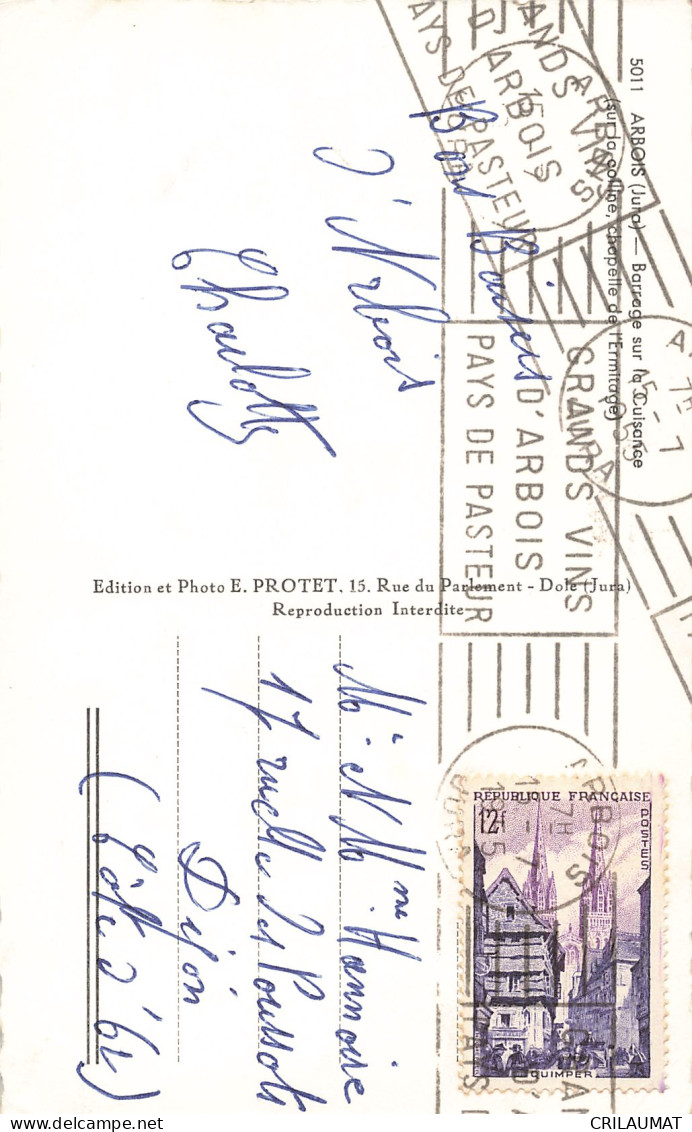 5011 ARBOIS (Jura) — Barrage sur la Cuisance
(sur la colline, chapelle de l'Ermitage)
Bons Baisers
d'Arbois
Charlotte
GRANDS VINS
D'ARBOIS
PAYS DE PASTEUR
GRANDS VINS
D'ARBOIS
PAYS DE PASTEUR
ARBOIS
7H
15-7
1955
JURA
Edition et Photo E. PROTET, 15, Rue du Parlement - Dole (Jura)
Reproduction Interdite
Mr & Mme Hannoire
17 ruelle des Poussots
Dijon
(Côte d'Or)
RÉPUBLIQUE FRANÇAISE
12f
POSTES
QUIMPER
CRILAUMAT